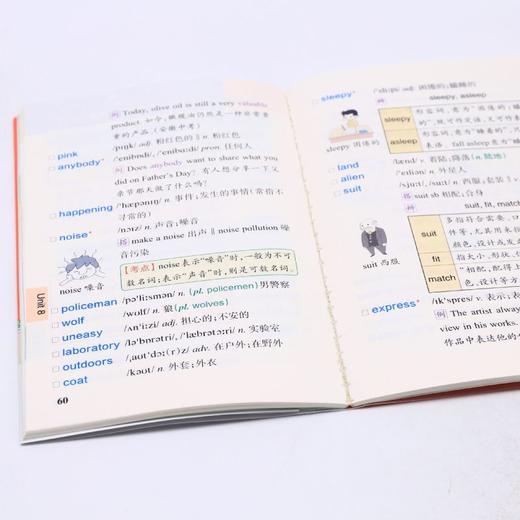 例 Today, olive oil is still a very valuable
product. 如今, 橄榄油仍然是一种非常贵
重的产品. (安徽中考)
pink /pɪŋk/ adj. 粉红色的‖n. 粉红色
anybody* /ˈenibɒdi/, /ˈenibɑːdi/ pron. 任何人
例 Does anybody want to share what you
did on Father's Day? 有人想分享一下父
亲节那天做了什么吗?
happening /ˈhæpənɪŋ/ n. 事件; 发生的事情(常指不
寻常的)
noise* /nɔɪz/ n. 声音; 噪音
搭 make a noise 出声‖noise pollution 噪
音污染
【考点】noise 表示“噪音”时, 一般为不可
数名词; 表示“声音”时, 则是可数名词.
noise 噪音
Unit 8
policeman /pəˈliːsmən/ n. (pl. policemen) 男警察
wolf /wʊlf/ n. 狼(pl. wolves)
uneasy /ʌnˈiːzi/ adj. 担心的; 不安的
laboratory /ləˈbɒrətri/, /ˈlæbrətɔːri/ n. 实验室
outdoors /ˌaʊtˈdɔː(r)z/ adv. 在户外; 在野外
coat /kəʊt/ n. 外套; 外衣
60
sleepy* /ˈsliːpi/ adj. 困倦的; 瞌睡的
辨 sleepy, asleep
sleepy 形容词, 意为“困倦的;
的”, 既可作定语, 又可作
asleep 形容词, 意为“睡着的”,
语. fall asleep 意为“
sleepy 困倦的
land /lænd/ v. 着陆; 降落 (n. 陆地)
alien /ˈeɪliən/ n. 外星人
suit /sjuːt/, /suːt/ n. 西服; 套装
搭 suit sb 相配; 合身
辨 suit, fit, match
suit 多指符合需要、口
件等, 尤其用来指
颜色、设计或发
fit 指大小、形状、
match “相配”, 指配得上
式、颜色、设计
suit 西服
express* /ɪkˈspres/ v. 表示; 表
例 The artist always
view in his works.
作品中表达他的